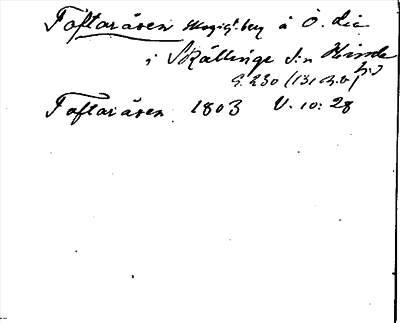 Toftaråsen skogigt berg å Ö. dic
i Skällinge s:n Himle
hd
S. 230 (131 B.b)
Toftaråsen 1803 V. 10: 28